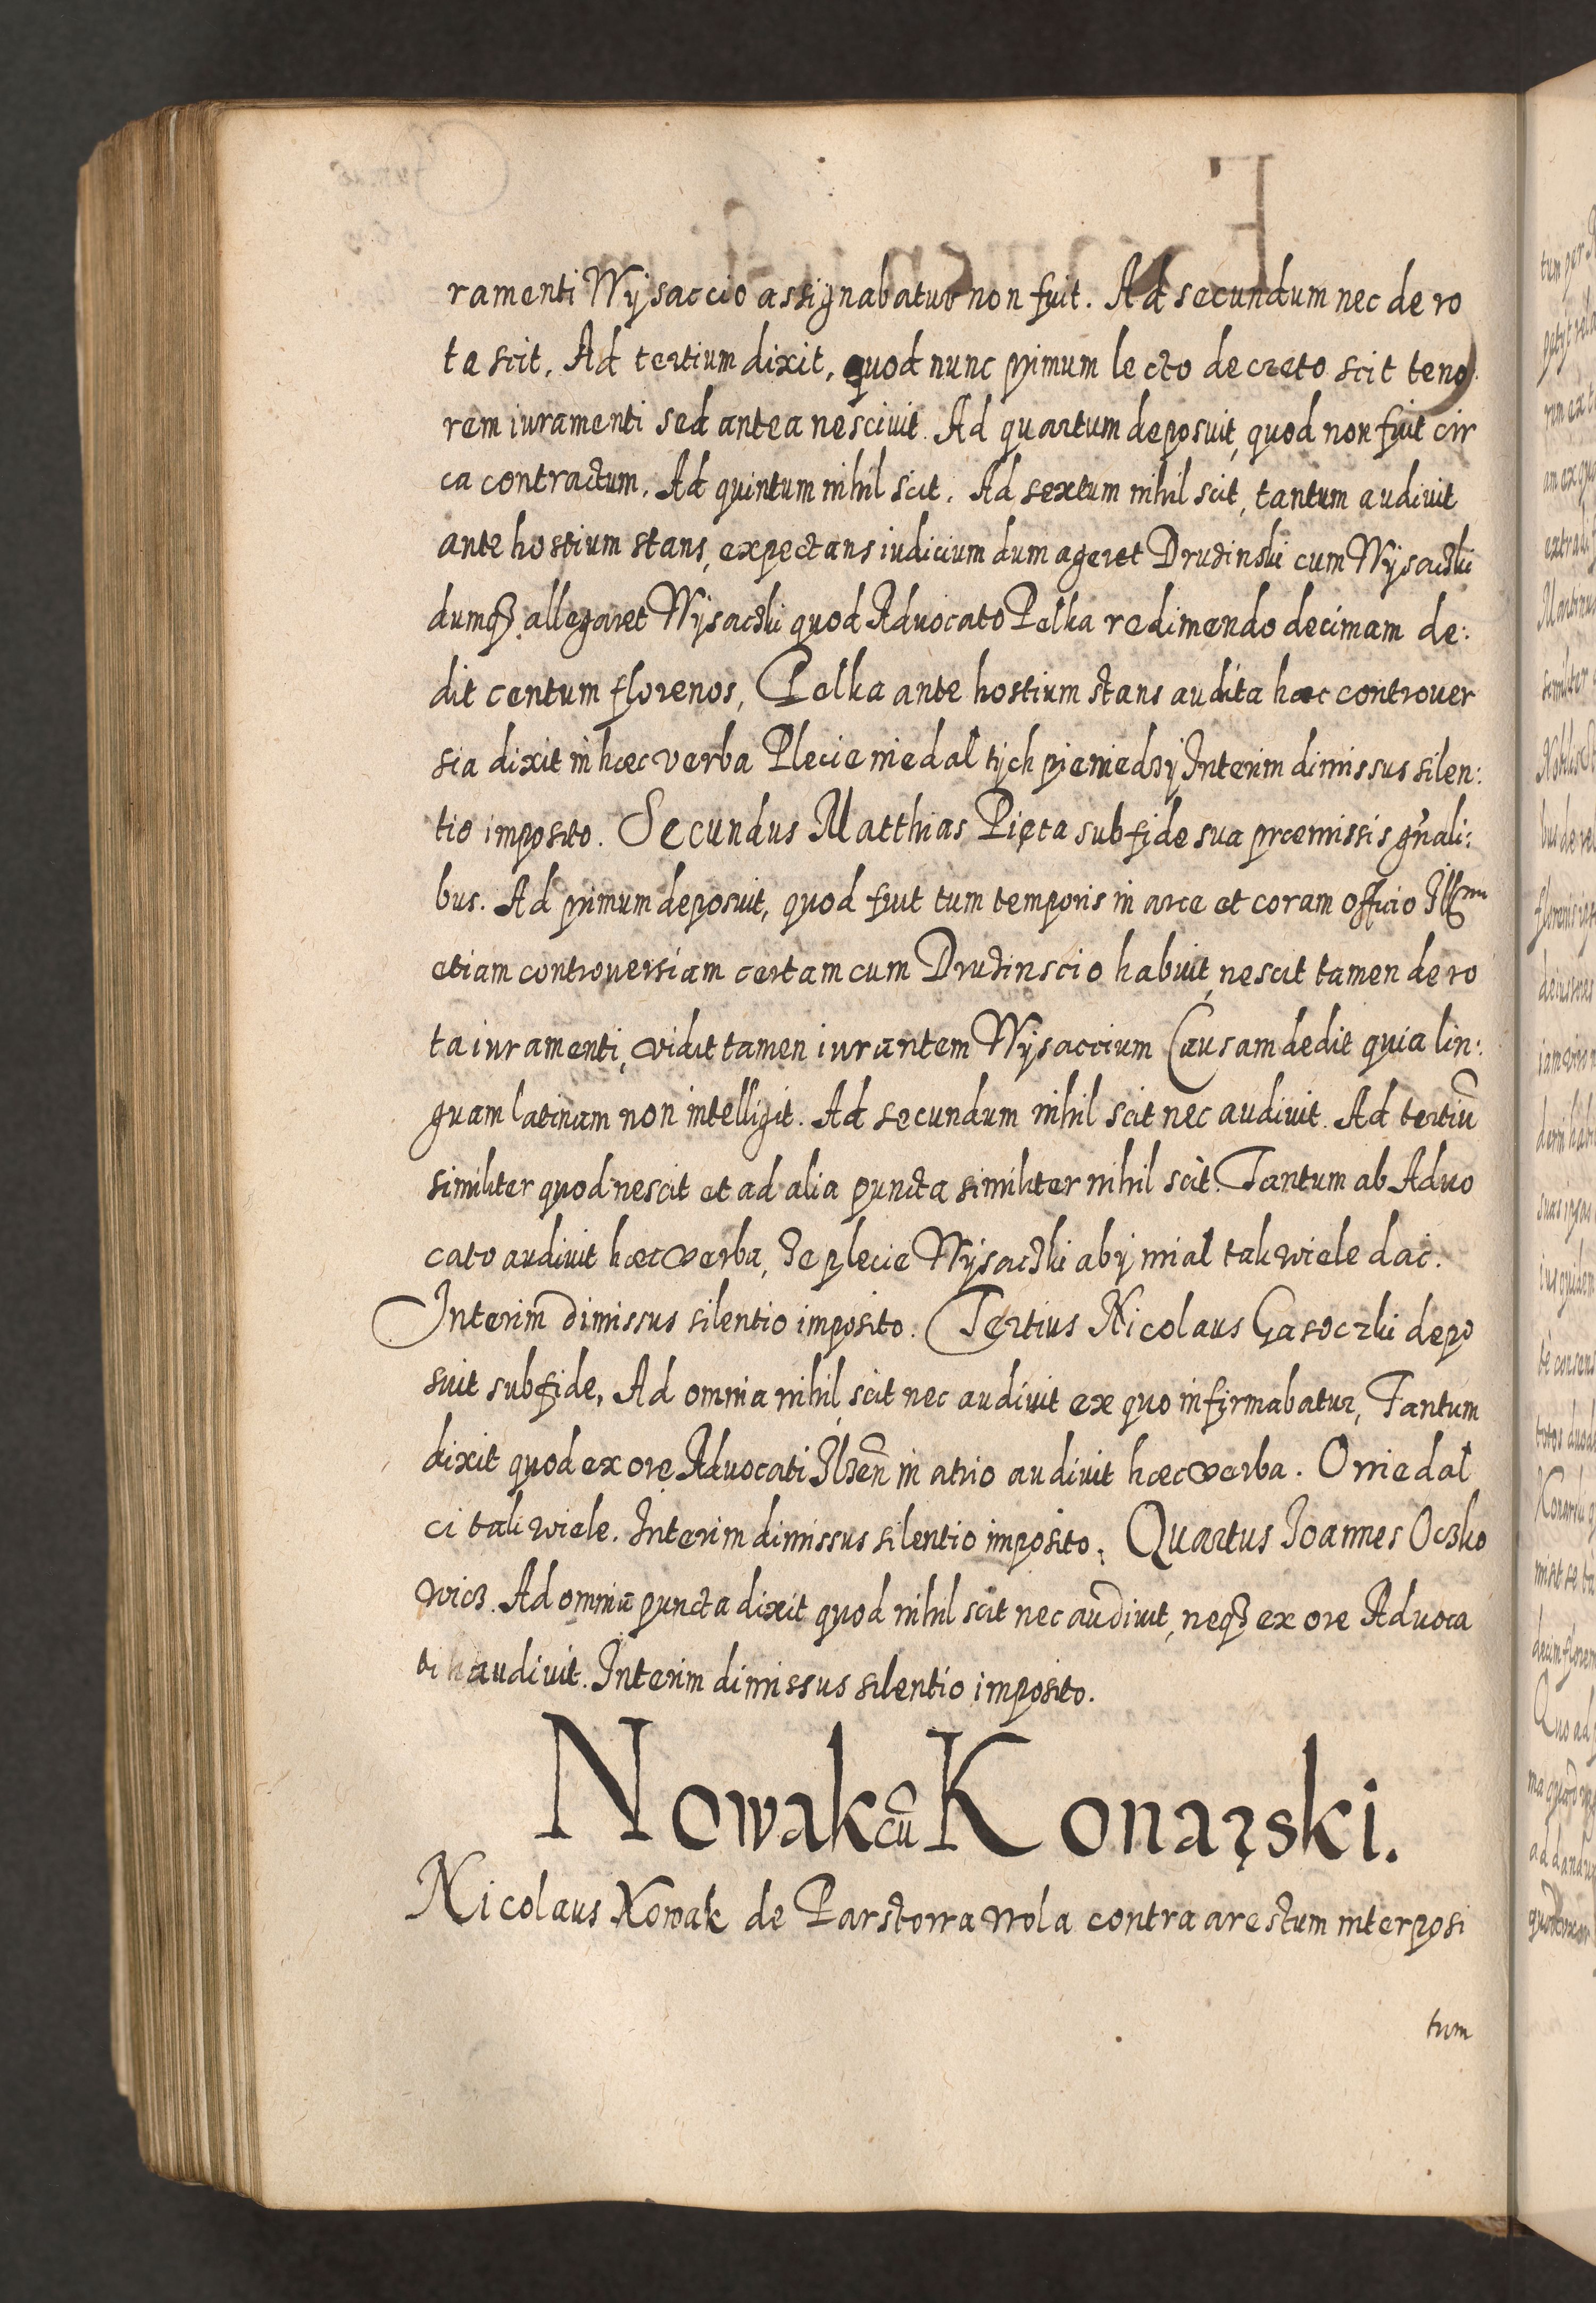 ramenti Wysaccio assignabatur non fuit. Ad secundum nec de ro
ta scit. Ad tertium dixit, quod nunc primum lecto decreto scit teno
rem iuramenti sed antea nescivit. Ad quartum deposuit, quod non fuit cir
ca contractum. Ad quintum nihil scit. Ad sextum nihil scit, tantum audivit
ante hostium stans, expectans iudicium dum ageret Druzinski cum Wysaczki
dumqꝫ allegaret Wysaczki quod Aduocato Pelka redimendo decimam de:
dit centum florenos, Pelka ante hostium stans audita hæc controuer
sia dixit in hæc verba Plecie niedal tych pieniedzy Interim dimissus silen:
tio imposito. Secundus Matthias Pięta sub fide sua præmissis gn̄ali:
bus. Ad primum deposuit, quod fuit tum temporis in arce et coram officio
etiam controversiam certam cum Druzinscio habuit, nescit tamen de ro
ta iuramenti, vidit tamen iurantem Wysaccium Causam dedit quia lin:
guam latinam non intelligit. Ad secundum nihil scit nec audivit. Ad tertiū
similiter quod nescit et ad alia puncta similiter nihil scit. Tantum ab Aduo
cato audivit hæc verba, ze plecie Wysaczki aby mial tak wiele dac.
Interim dimissus silentio imposito. Tertius Nicolaus Gasoczki depo
suit sub fide, Ad omnia nihil scit nec audivit ex quo infirmabatur, Tantum
dixit quod ex ore Aduocati Ilzēn in atrio audivit hæc verba. O niedal
ci tak wiele. Interim dimissus silentio imposito. Quartus Joannes Oczko
wicz. Ad omnia puncta dixit quod nihil scit nec audivit, neqꝫ ex ore Aduoca
ti haudivit. Interim dimissus silentio imposito.
Nowak cū Konarski.
Nicolaus Nowak de Parszowa Wola contra arestum interposi
tum